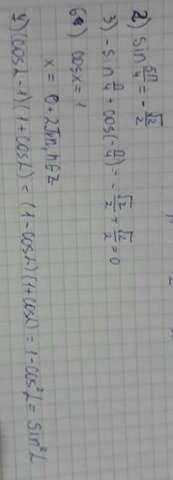 2) sin 5π/4 = -√2/2
3) -sin π/4 + cos(-π/4) = -√2/2 + √2/2 = 0
6а) cosx = 1
x = 0 + 2πn, n∈z
7) (cosα - 1)(1 + cosα) = (1 - cosα)(1 + cosα) = 1 - cos²α = sin²α